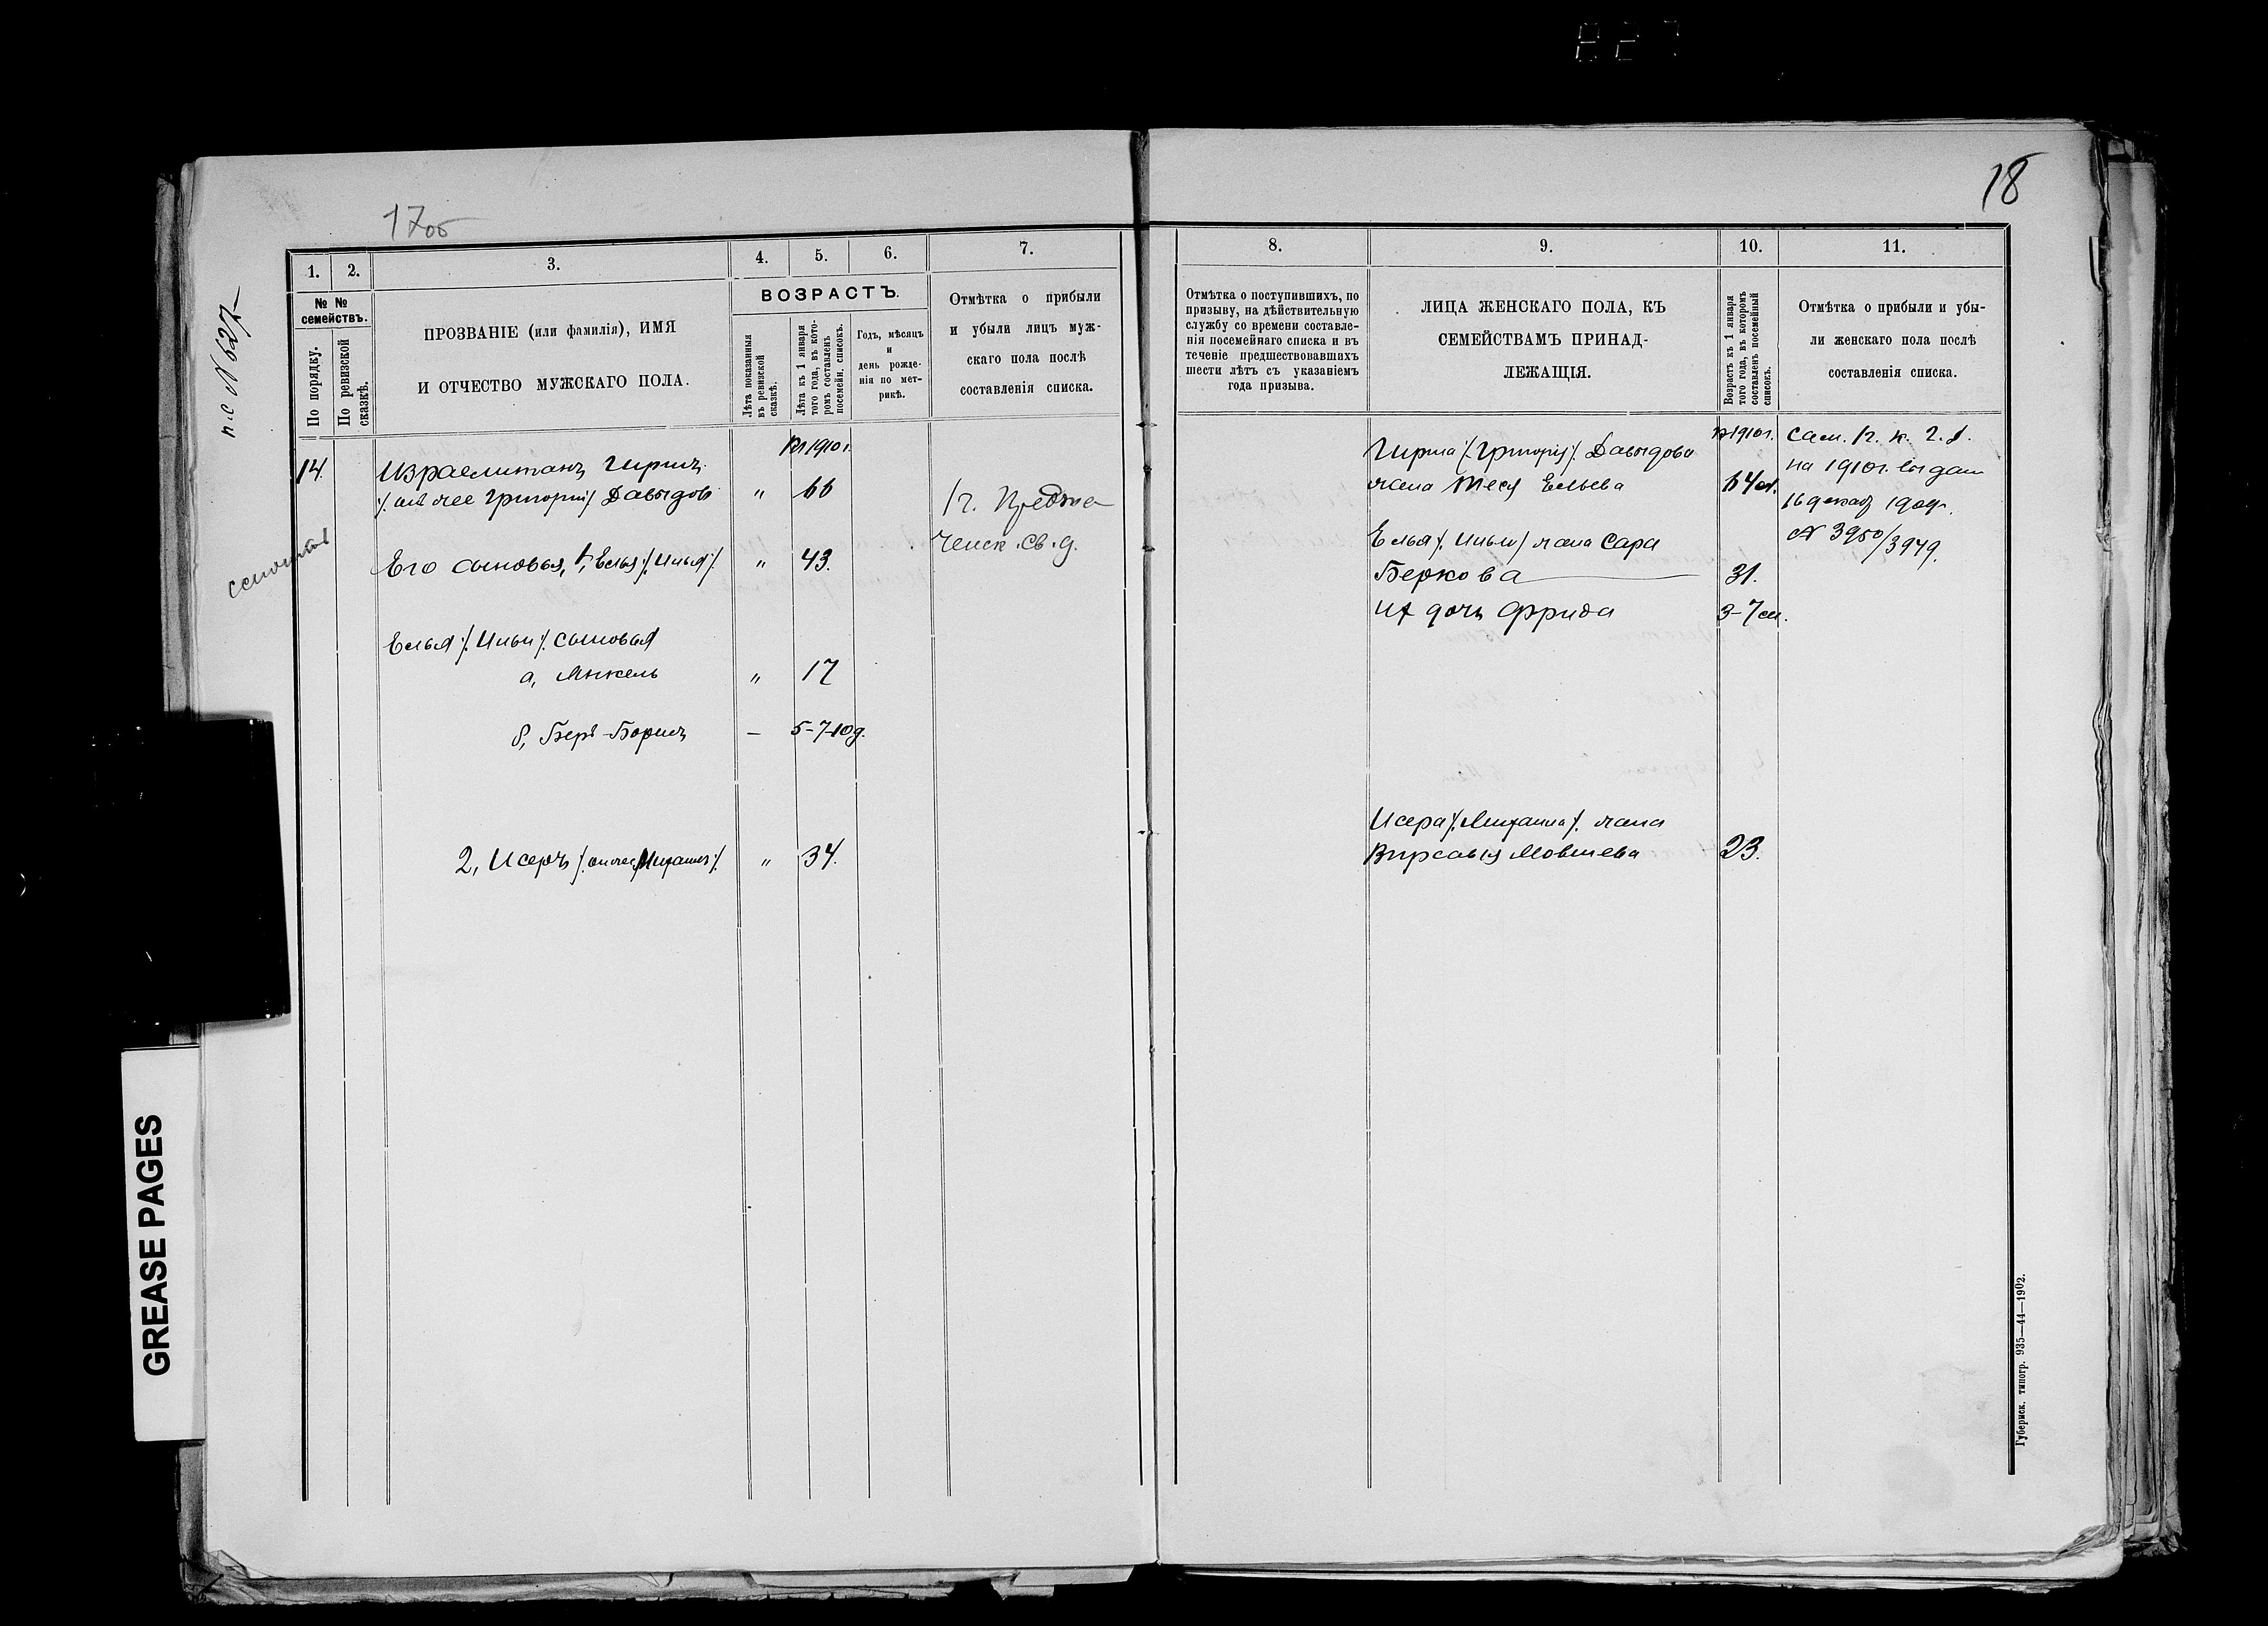 17об
18
п.с N 627
1.
2.
3.
4.
5.
6.
7.
8.
9.
10.
11.
№ № семействъ.
По порядку.
По ревизской сказкѣ.
ПРОЗВАНІЕ (или фамилія), ИМЯ
И ОТЧЕСТВО МУЖСКАГО ПОЛА.
ВОЗРАСТЪ.
Лѣта показанныя
въ ревизской
сказкѣ.
Лѣта къ 1 января
того года, въ кото-
ромъ составленъ
посемейн. списокъ.
Годъ, мѣсяцъ
и
день рожде-
нія по мет-
рикѣ.
Отмѣтка о прибыли
и убыли лицъ муж-
скаго пола послѣ
составленія списка.
Отмѣтка о поступившихъ, по
призыву, на дѣйствительную
службу со времени составле-
нія посемейнаго списка и въ
теченіе предшествовавшихъ
шести лѣтъ съ указаніемъ
года призыва.
ЛИЦА ЖЕНСКАГО ПОЛА, КЪ
СЕМЕЙСТВАМЪ ПРИНАД-
ЛЕЖАЩІЯ.
Возрастъ къ 1 января
того года, въ которомъ
составленъ посемейный
списокъ.
Отмѣтка о прибыли и убы-
ли женскаго пола послѣ
составленія списка.
на 1910 г.
14. Израелитанъ Гиршъ
/: онъ же Григорій :/ Давыдовъ " 66
Его сыновья, 1, Елья /: Илья :/ " 43.
Елья /: Ильи :/ сыновья
а, Янкель " 17
б, Беръ-Борисъ — 5-7-10 д.
2, Исеръ /: онъ же Михаилъ :/ " 34.
Гирша /: Григорія :/ Давыдова
жена Теся Ельева 64
Елья /: Ильи :/ жена Сара
Беркова 31.
Их дочь Фрида 3-7 м.
Исера /: Михаила :/ жена
Вирсавія Мовшева 23.
на 1910 г. выдан
16 декаб 1909 г.
N 3950/3949.
Губернск. типогр. 935—44—1902.
GREASE PAGES